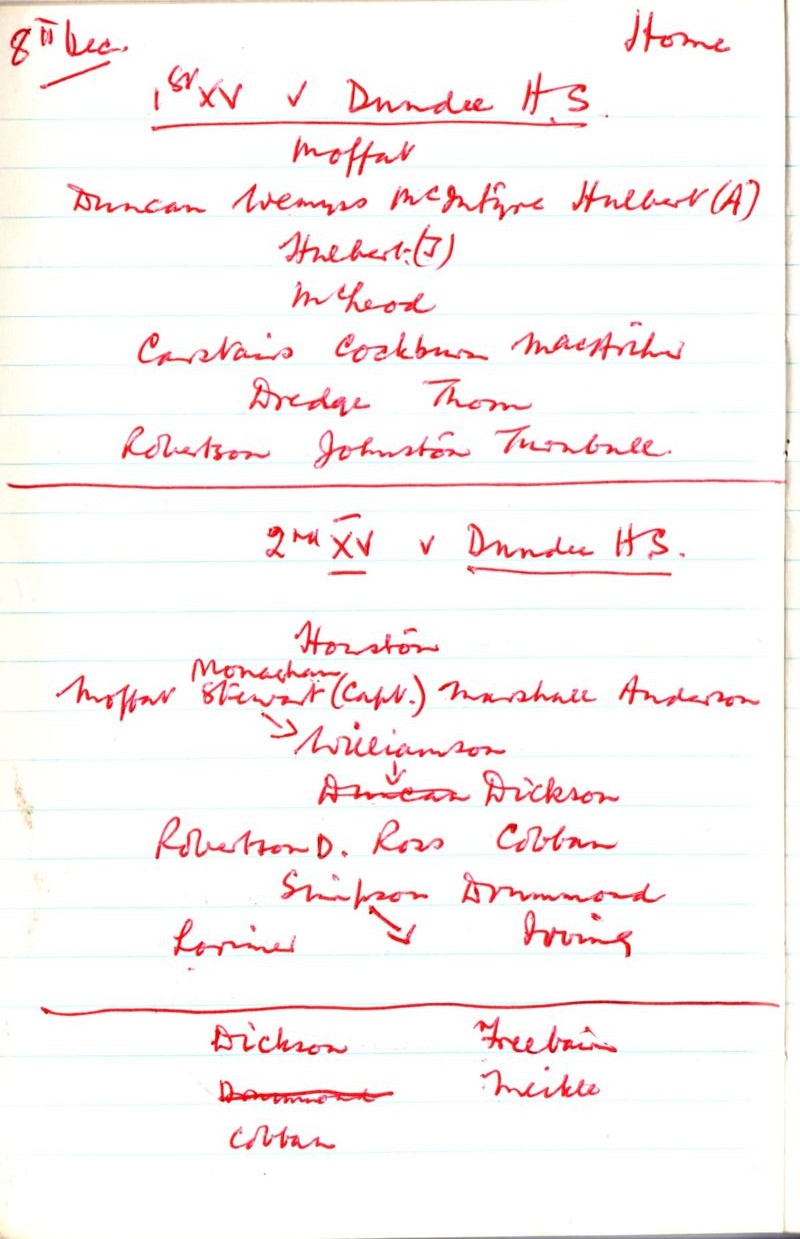 8th Dec. Home
1st XV v Dundee H.S.
Moffat
Duncan Wemyss McIntyre Hulbert (A)
Hulbert (J)
McLeod
Carstairs Cockburn MacArthur
Dredge Thom
Robertson Johnston Turnbull.
2nd XV v Dundee H.S.
Houston
Monaghan
Moffat Stewart (Capt.) Marshall Anderson
Williamson
Duncan Dickson
Robertson D. Ross Cobban
Simpson Drummond
Lorimer Irving
Dickson Freebairn
Drummond Meikle
Cobban